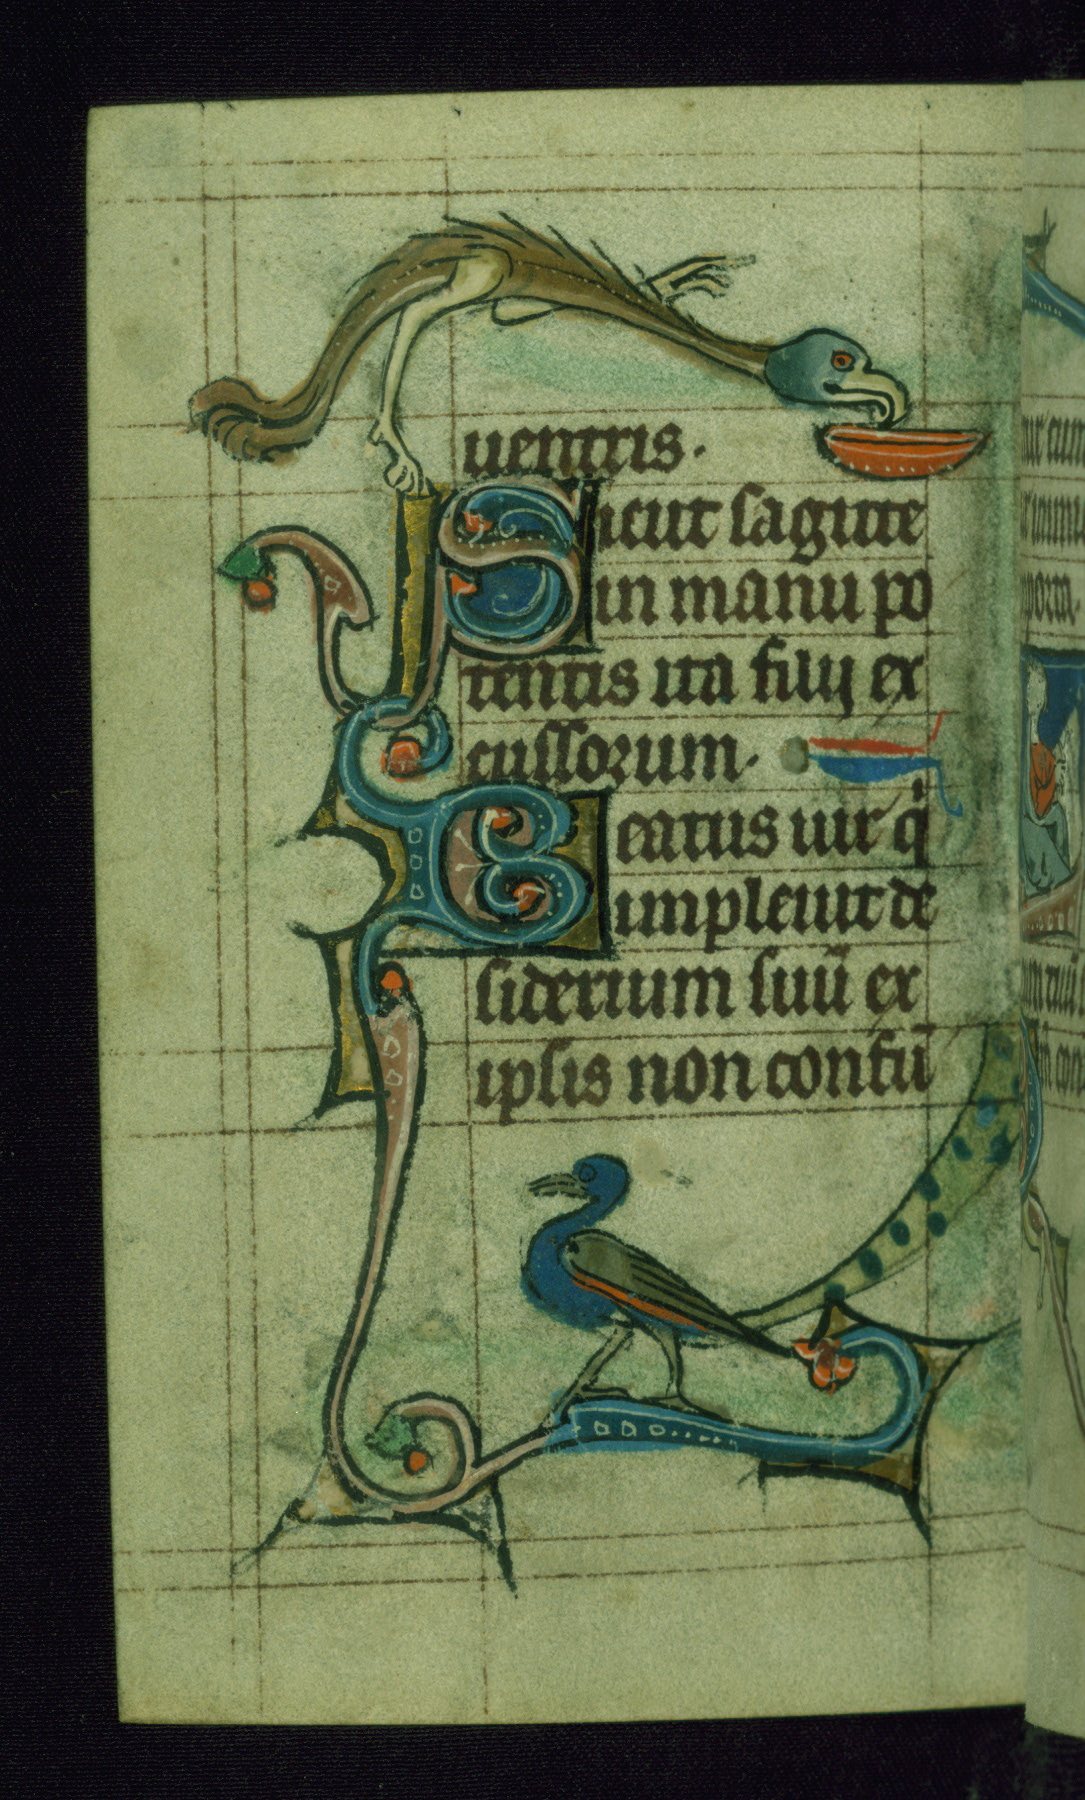 uentris.
Sicut sagitte
in manu po
tentis ita filij ex
cussorum.
Beatus uir q̇
impleuit de
siderium suū ex
ipsis non confū